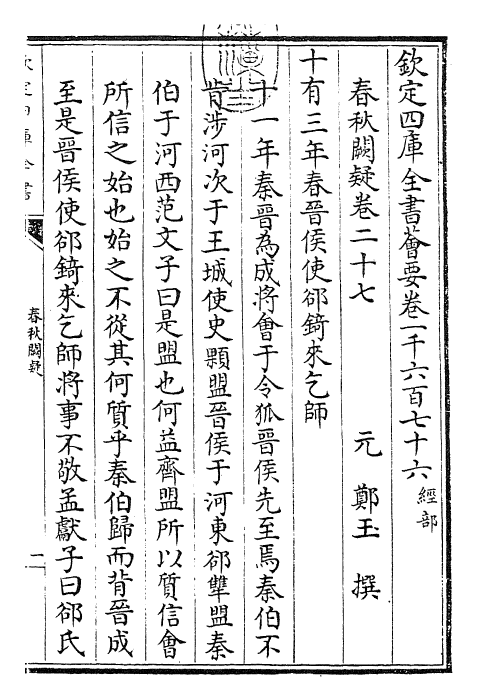 欽定四庫全書薈要卷一千六百七十六 經部
春秋闕疑卷二十七
元 鄭玉 撰
十有三年春晉侯使郤錡來乞師
十一年秦晉為成將會于令狐晉侯先至焉秦伯不
肯涉河次于王城使史顆盟晉侯于河東郤犨盟秦
伯于河西范文子曰是盟也何益齊盟所以質信會
所信之始也始之不從其何質乎秦伯歸而背晉成
至是晉侯使郤錡來乞師將事不敬孟獻子曰郤氏
欽定四庫全書
春秋闕疑